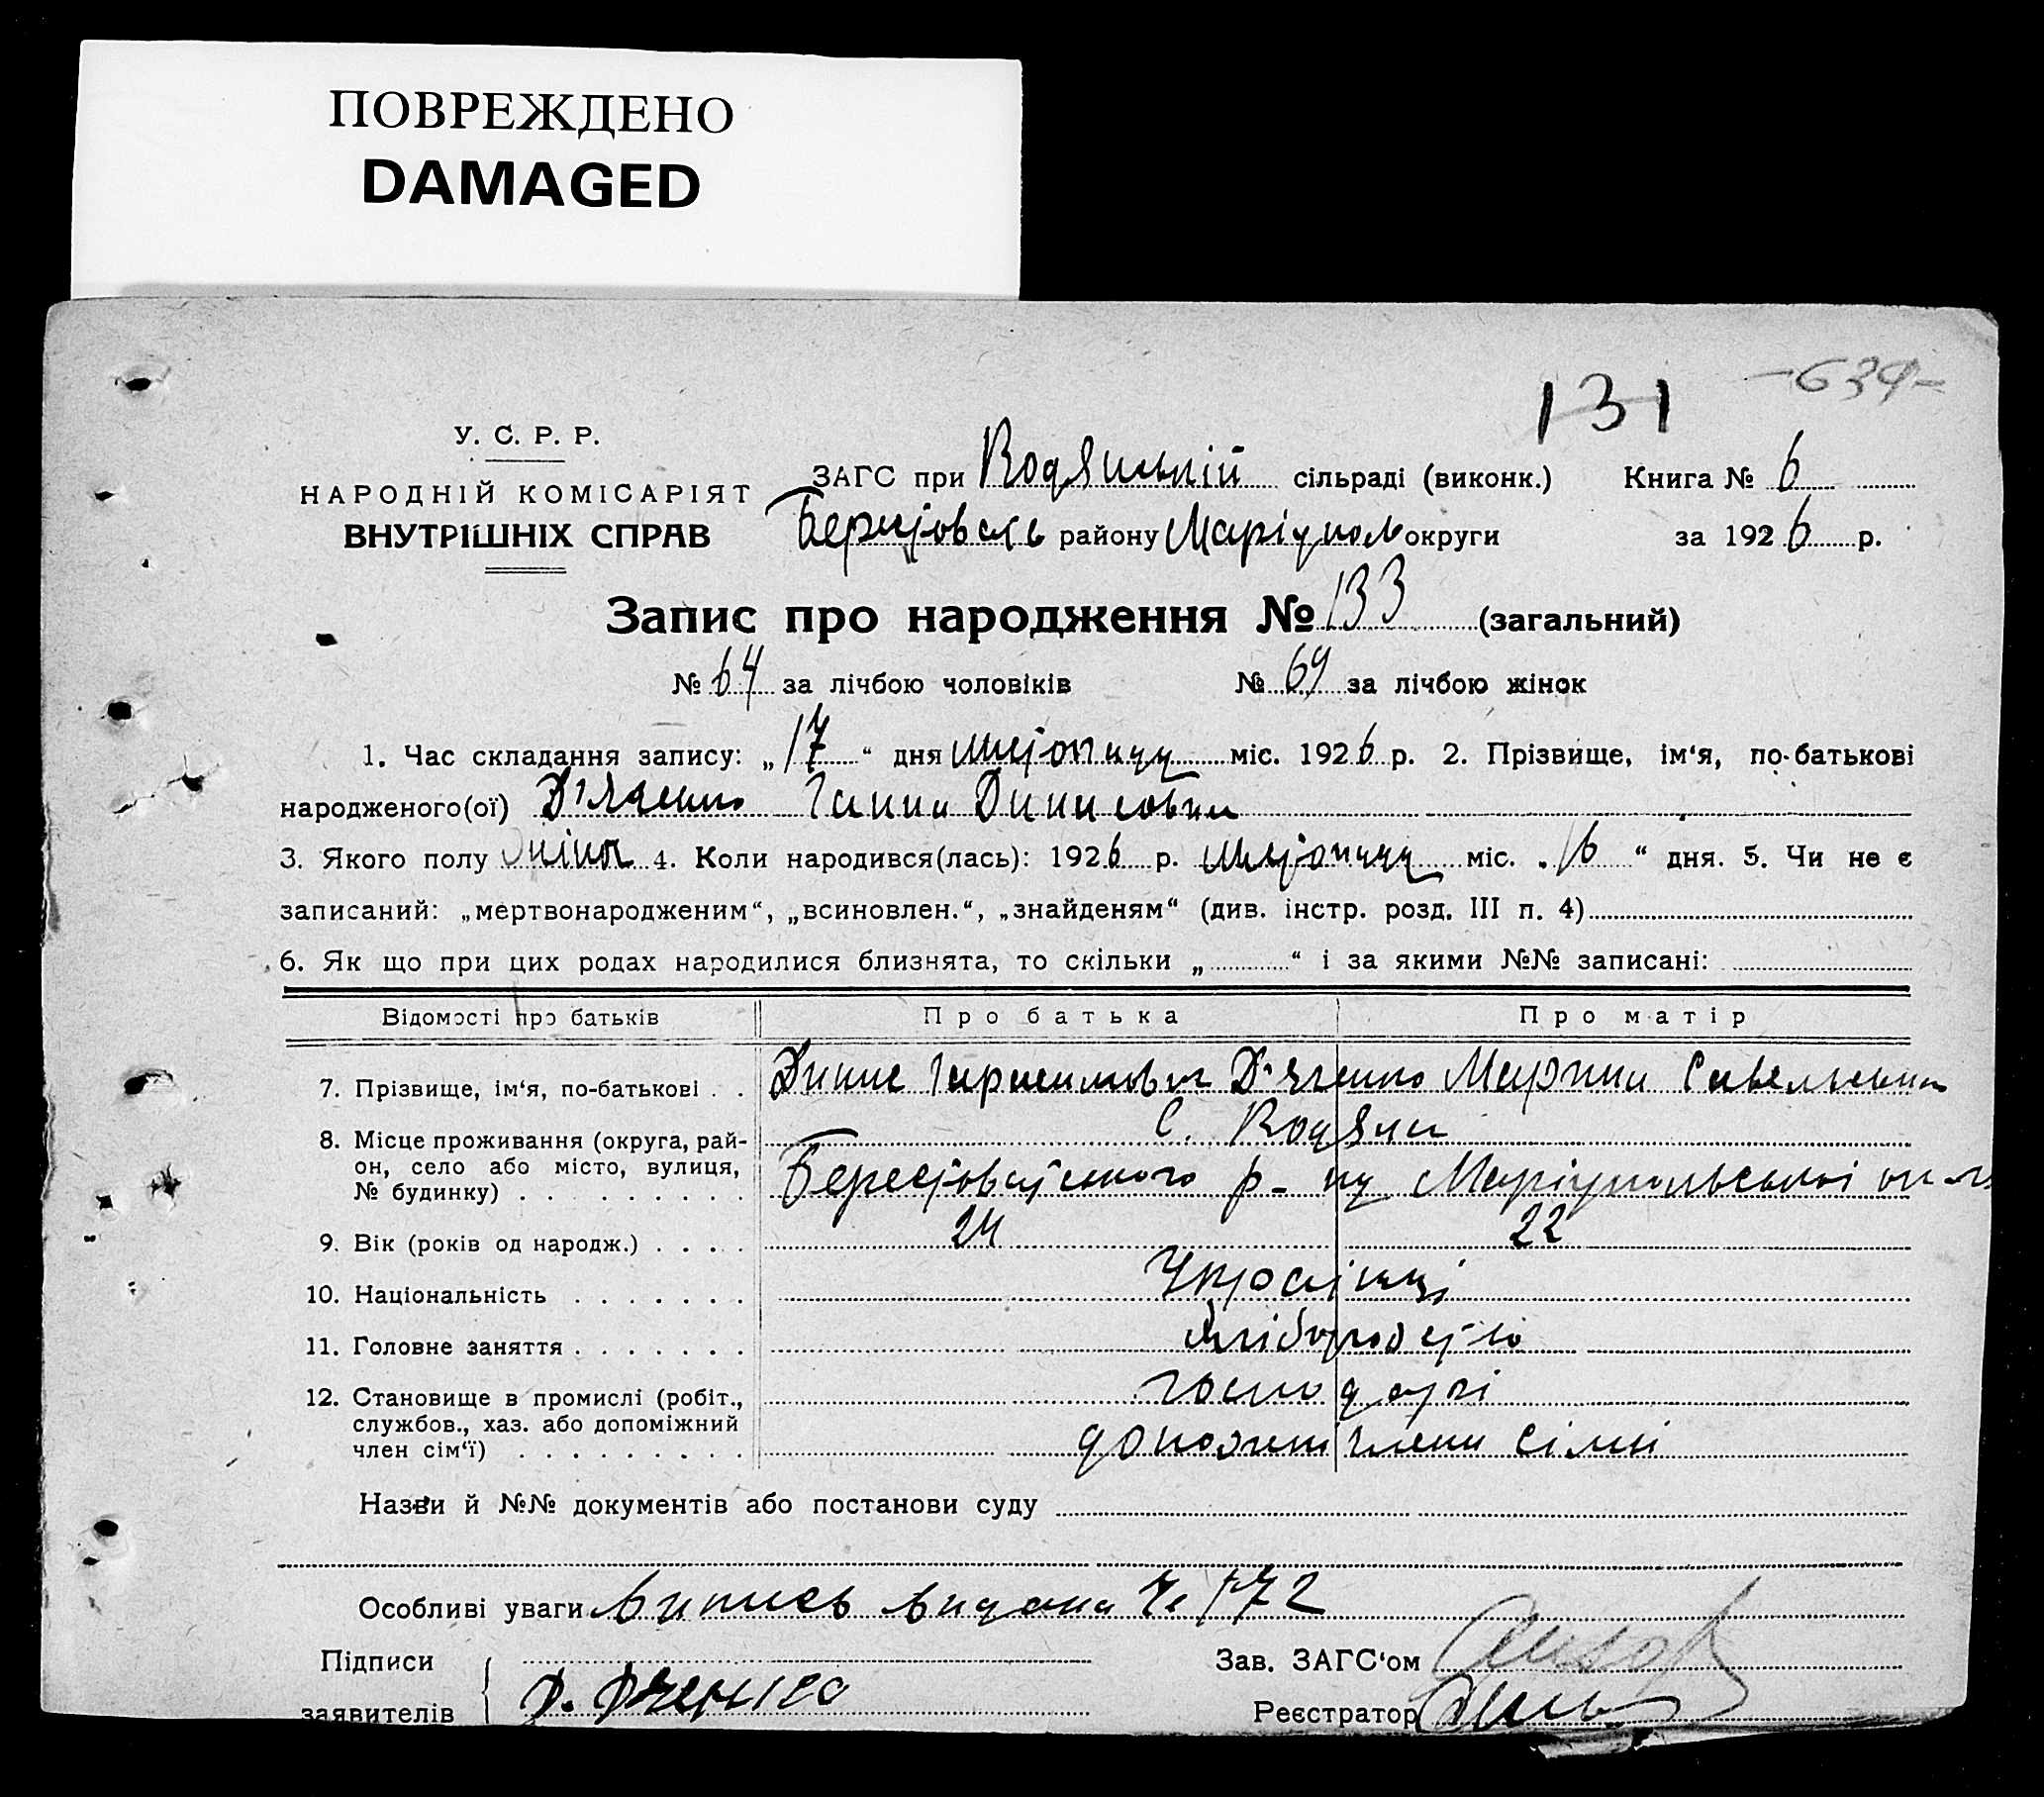 ПОВРЕЖДЕНО
DAMAGED
-639-
131
У. С. Р. Р.
НАРОДНІЙ КОМІСАРІЯТ
ВНУТРІШНІХ СПРАВ
ЗАГС при Водянській сільраді (виконк.) Книга № 6
району Маріупол округи за 1926 р.
Запис про народження № 133 (загальний)
№ 64 за лічбою чоловіків № 69 за лічбою жінок
1. Час складання запису: „17“ дня міс. 1926 р. 2. Прізвище, ім‘я, по-батькові
народженого(ої) Д'яченко Ганна Динисовна
3. Якого полу жіноч 4. Коли народився(лась): 1926 р. міс. „16“ дня. 5. Чи не є
записаний: „мертвонародженим“, „всиновлен.“, „знайденям“ (див. інстр. розд. III п. 4)
6. Як що при цих родах народилися близнята, то скільки „ “ і за якими №№ записані:
Відомості про батьків Про батька Про матір
7. Прізвище, ім‘я, по-батькові . . Динис Д'яченко Марина Савельевна
8. Місце проживання (округа, рай- С. Водяне
он, село або місто, вулиця, Берестоватського р-ну Маріупольської
№ будинку) . . . . . . . . .
9. Вік (років од народж.) . . . . 24 22
10. Національність . . . . . . . Українці
11. Головне заняття . . . . . . . Хліборобство
12. Становище в промислі (робіт., господарі
службов., хаз. або допоміжний
член сім‘ї) . . . . . . . . . допомжн члени сімні
Назви й №№ документів або постанови суду
Особливі уваги Випись видана № 172
Підписи Зав. ЗАГС‘ом
заявителів Д. Дяченко Реєстратор